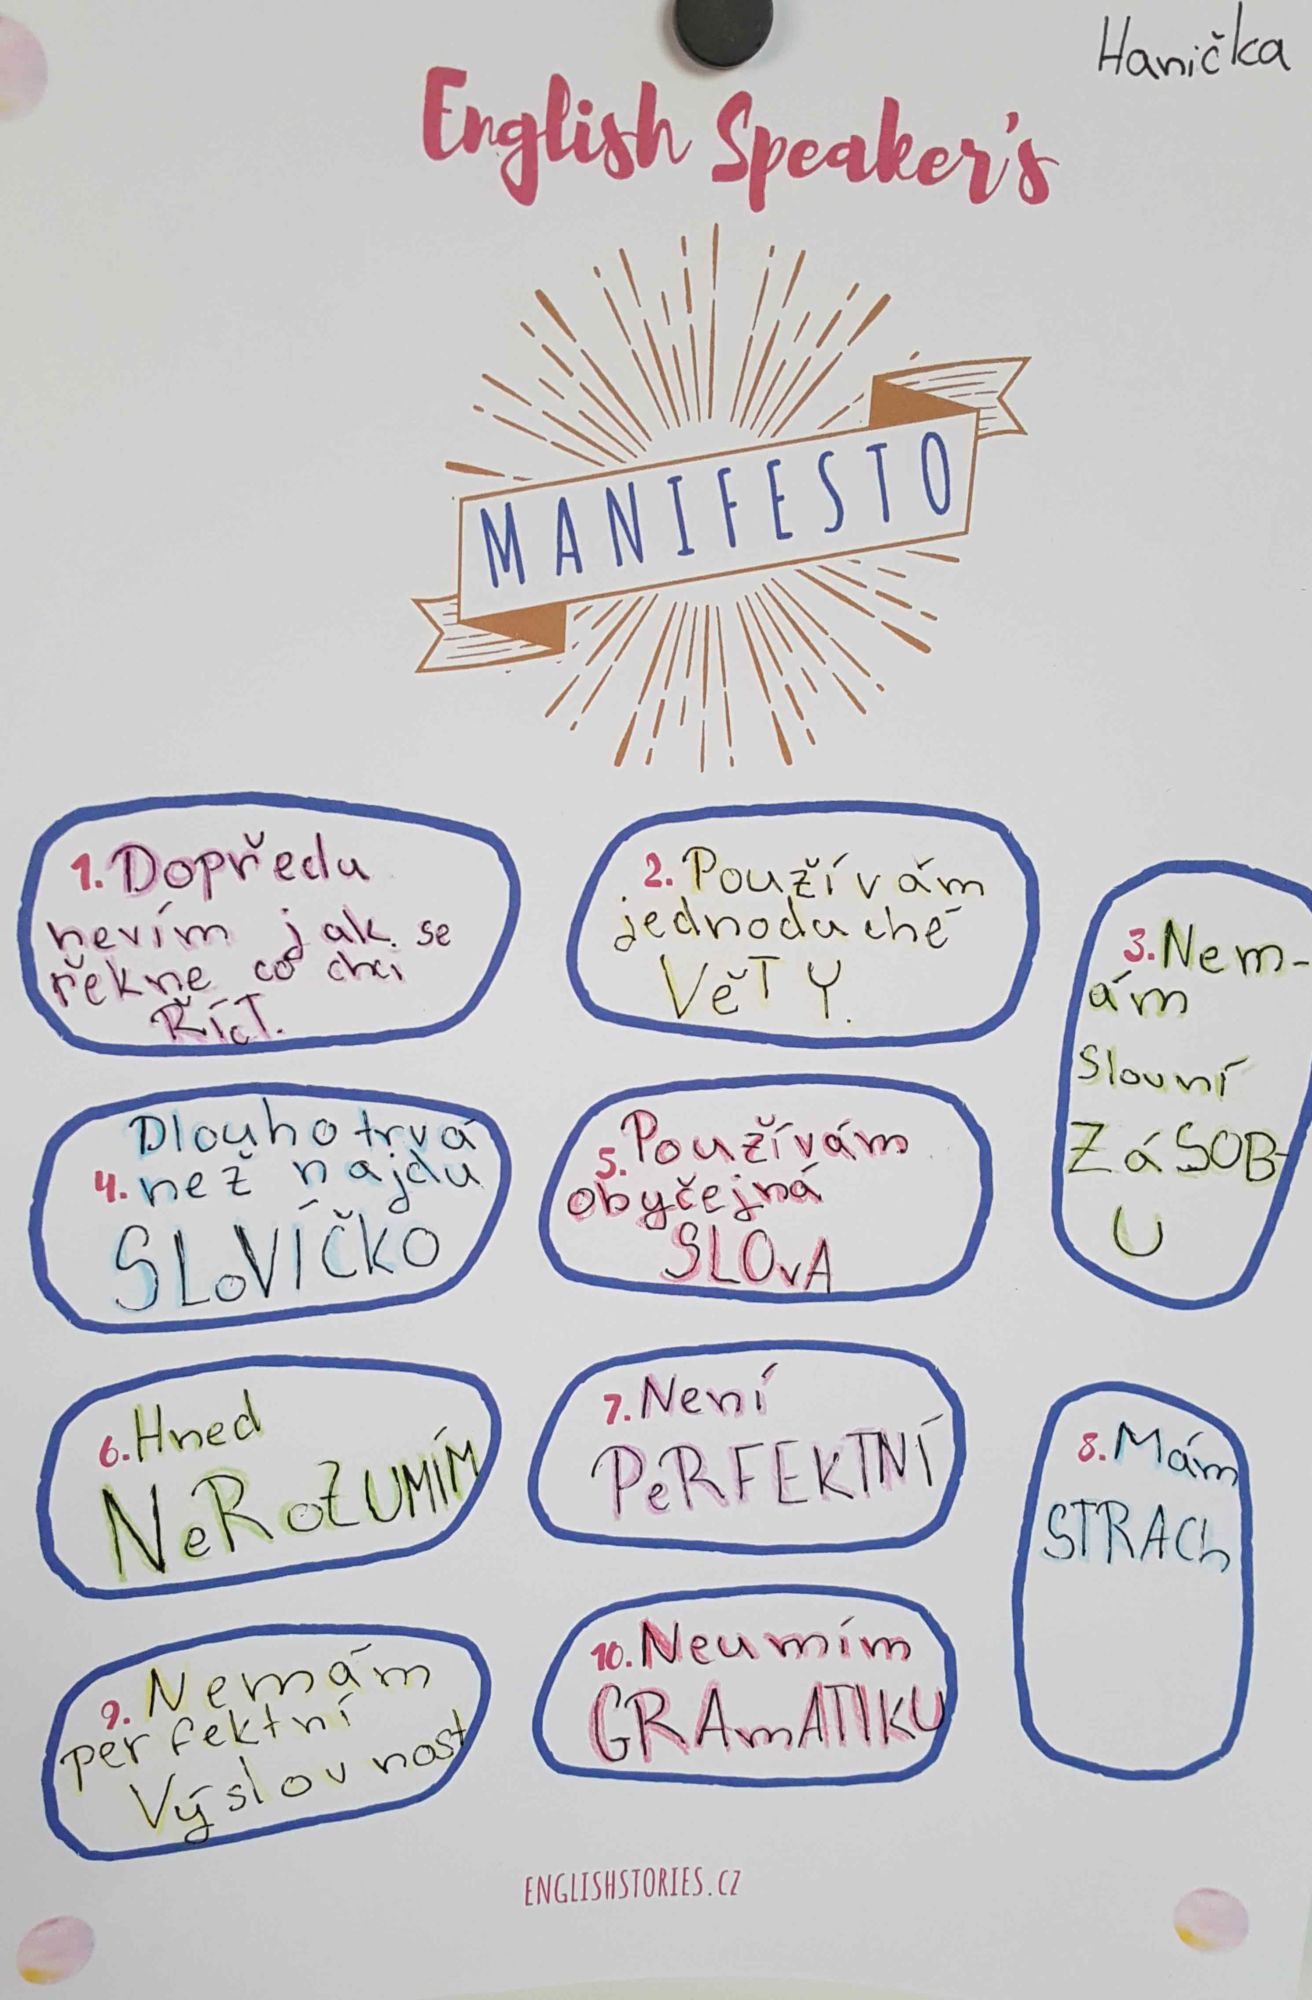 Hanička
English Speaker's
MANIFESTO
1. Dopředu
nevím jak se
řekne co chci
ŘícT.
2. Používám
jednoduché
VěTY.
3. Nem-
ám
Slovní
ZáSOB-
U
4. Dlouho trvá
než najdu
SLoVÍČKO
5. Používám
obyčejná
SLOvA
6. Hned
NeRoZUMÍM
7. Není
PeRFEKTNÍ
8. Mám
STRACh
9. Nemám
perfektní
Výslovnost
10. Neumím
GRAmATIKU
ENGLISHSTORIES.CZ